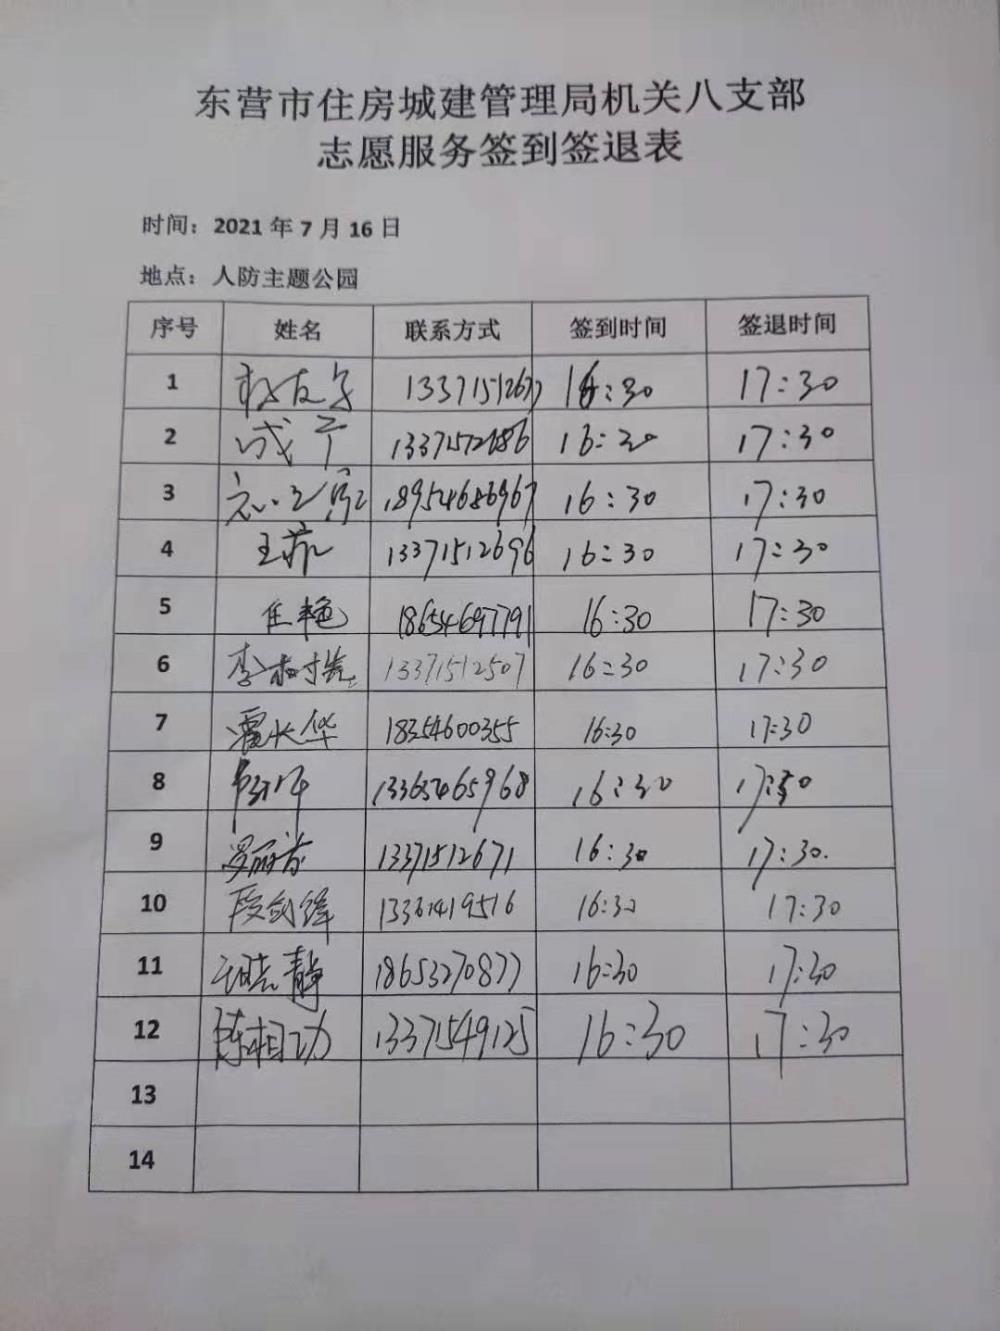 东营市住房城建管理局机关八支部
志愿服务签到签退表
时间：2021 年 7 月 16 日
地点：人防主题公园
序号 姓名 联系方式 签到时间 签退时间
1 13371512677 16:30 17:30
2 成平 13371572686 16:30 17:30
3 18954686967 16:30 17:30
4 王菲 13371512696 16:30 17:30
5 任艳 18654697791 16:30 17:30
6 13371512507 16:30 17:30
7 霍长华 18354600355 16:30 17:30
8 13365465968 16:30 17:30
9 罗丽芳 13371512671 16:30 17:30.
10 段剑锋 13361419516 16:30 17:30
11 18653270877 16:30 17:30
12 陈相功 13371549125 16:30 17:30
13
14